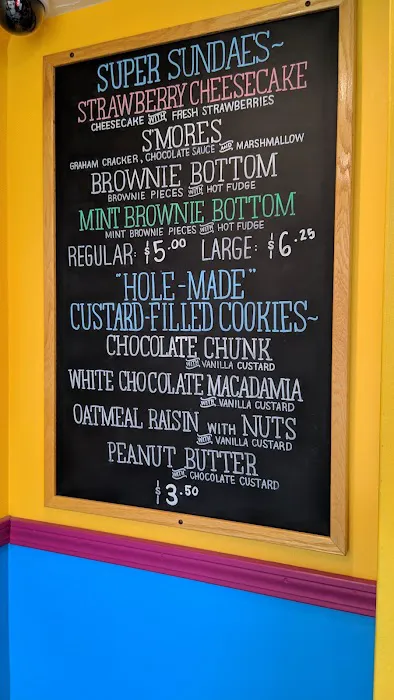 SUPER SUNDAES~
STRAWBERRY CHEESECAKE
CHEESECAKE WITH FRESH STRAWBERRIES
S'MORES
GRAHAM CRACKER, CHOCOLATE SAUCE AND MARSHMALLOW
BROWNIE BOTTOM
BROWNIE PIECES WITH HOT FUDGE
MINT BROWNIE BOTTOM
MINT BROWNIE PIECES WITH HOT FUDGE
REGULAR: $5.00 LARGE: $6.25
"HOLE-MADE"
CUSTARD-FILLED COOKIES~
CHOCOLATE CHUNK
WITH VANILLA CUSTARD
WHITE CHOCOLATE MACADAMIA
WITH VANILLA CUSTARD
OATMEAL RAISIN WITH NUTS
WITH VANILLA CUSTARD
PEANUT BUTTER
WITH CHOCOLATE CUSTARD
$3.50